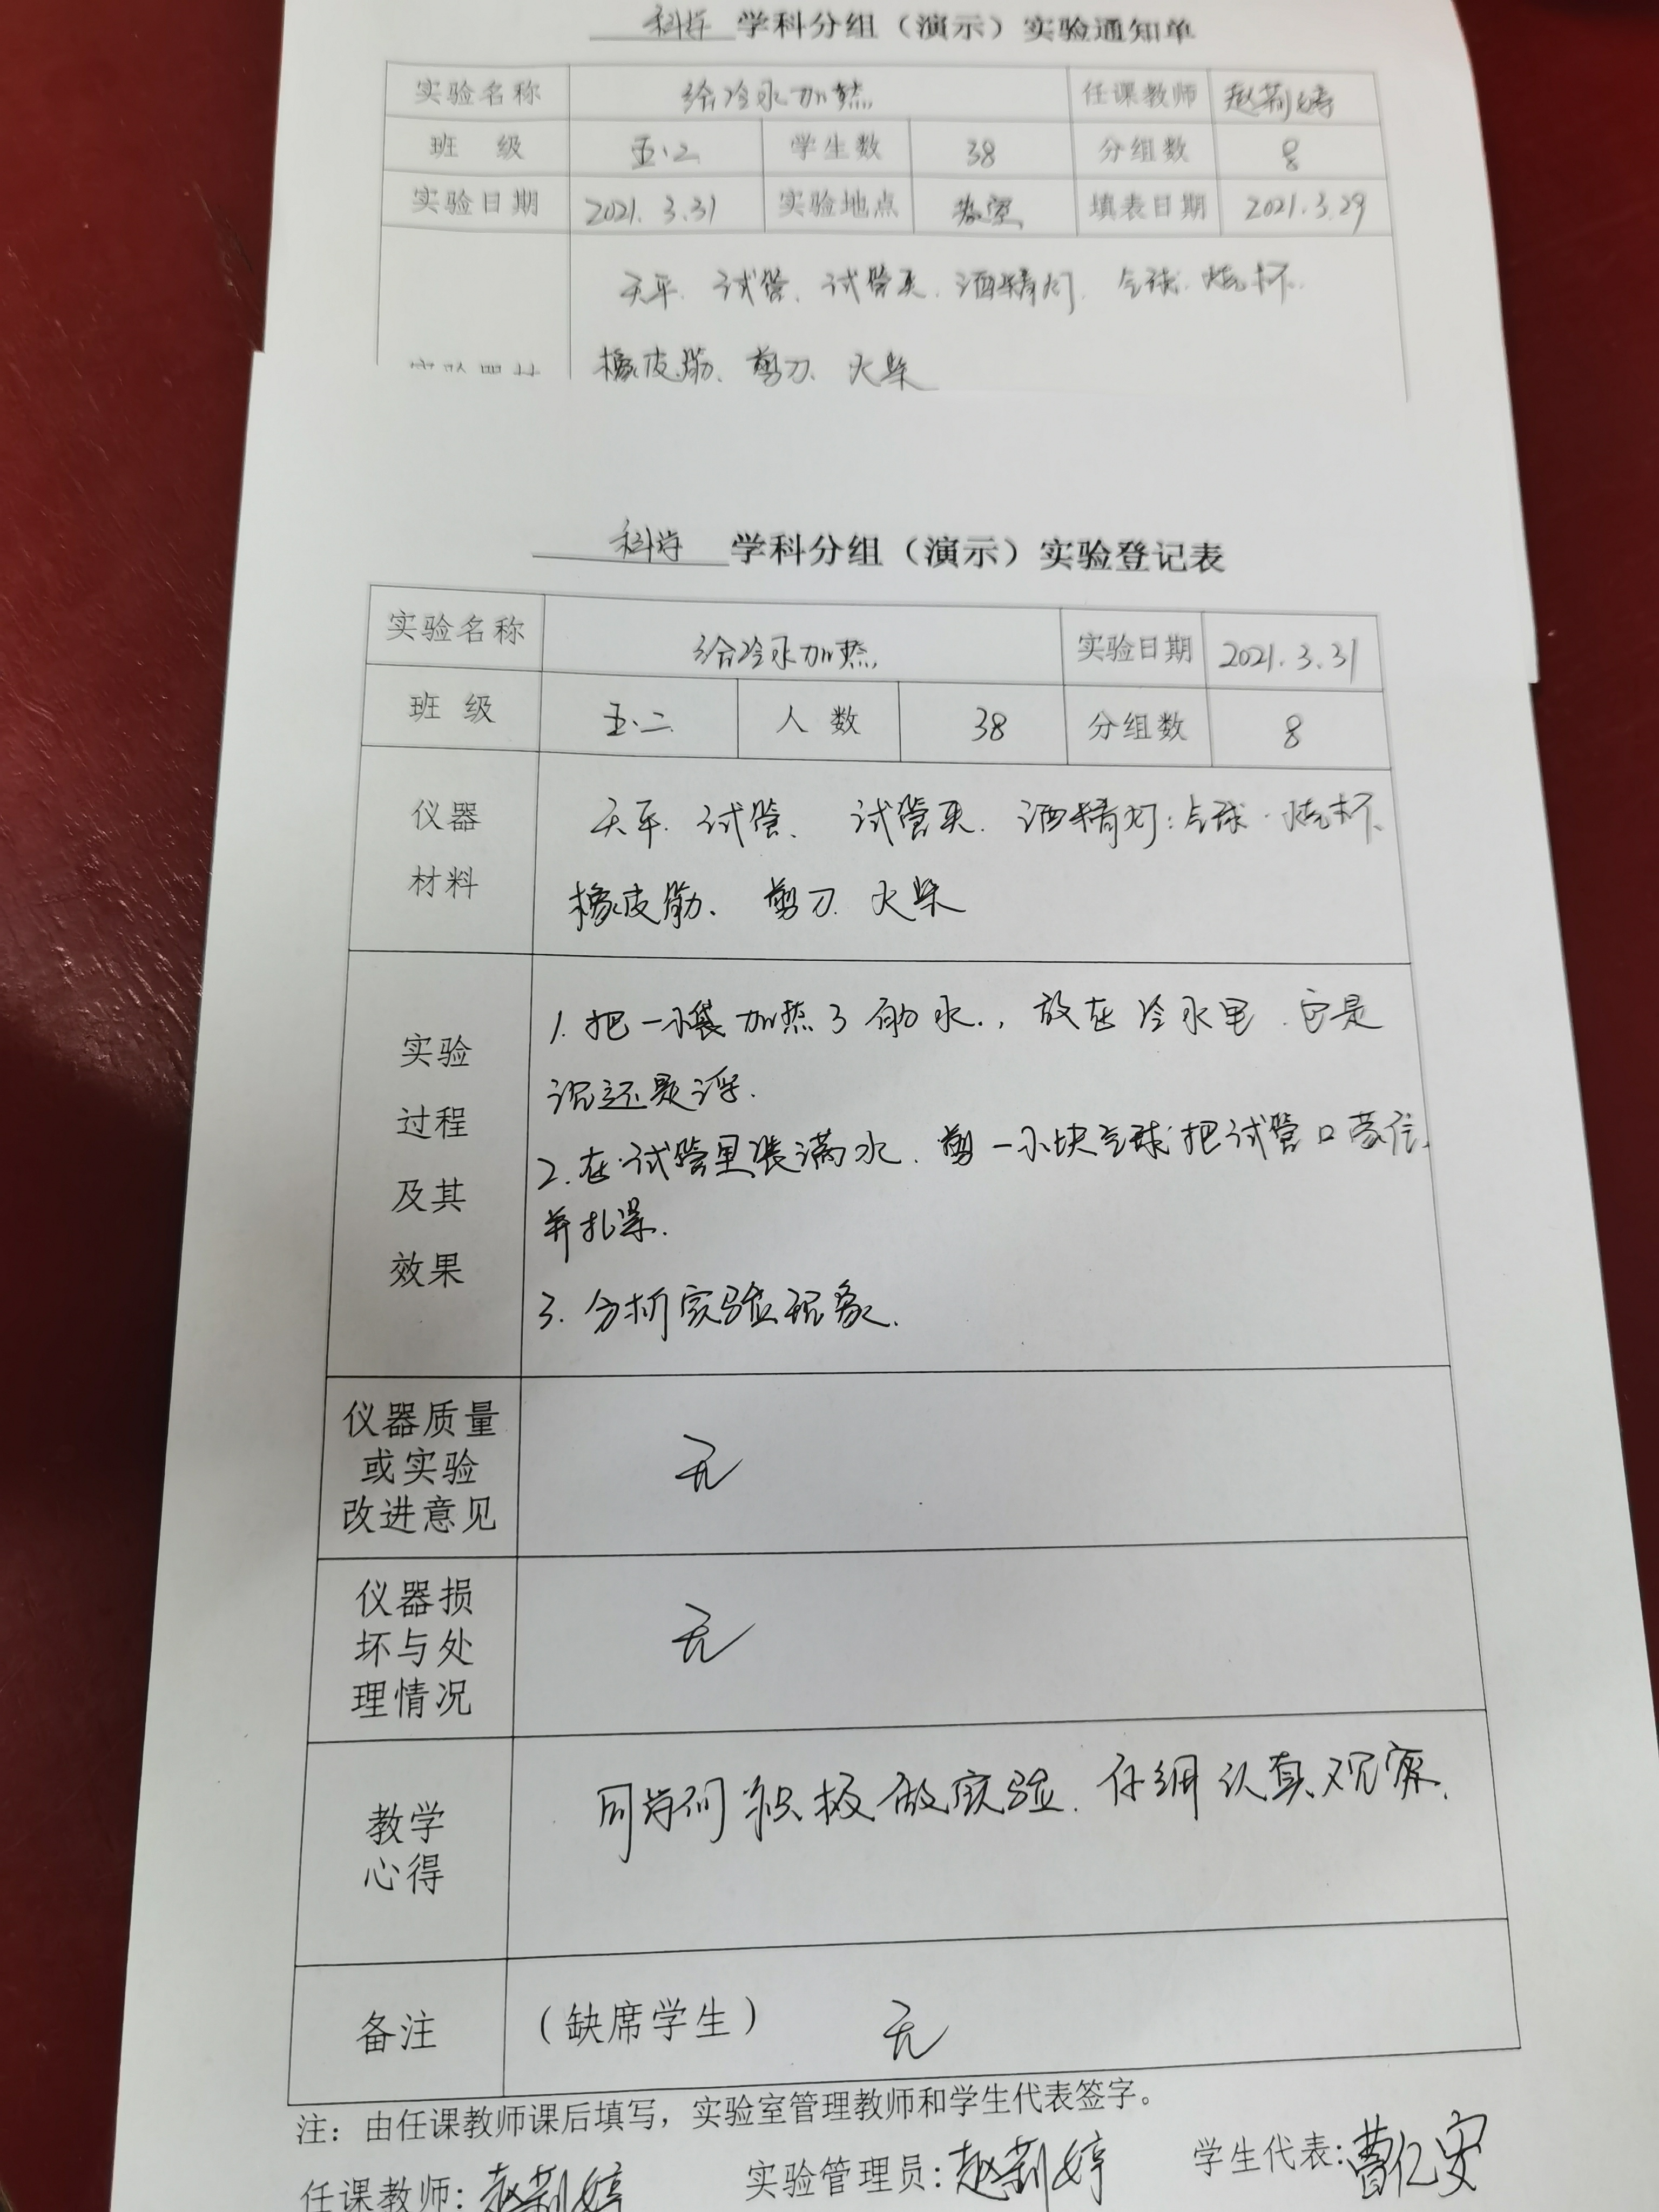 科学 学科分组（演示）实验通知单
实验名称 给冷水加热 任课教师 赵莉婷
班 级 五.二 学生数 38 分组数 8
实验日期 2021.3.31 实验地点 教室 填表日期 2021.3.29
天平、试管、试管夹、酒精灯、气球、烧杯、
橡皮筋、剪刀、火柴
科学 学科分组（演示）实验登记表
实验名称 给冷水加热 实验日期 2021.3.31
班 级 五.二 人 数 38 分组数 8
仪器 天平、试管、试管夹、酒精灯、气球、烧杯、
材料 橡皮筋、剪刀、火柴
实验
过程
及其
效果
1. 把一小袋加热了的水，放在冷水里，它是
沉还是浮.
2. 在试管里装满水，剪一小块气球把试管口蒙住，
并扎紧.
3. 分析实验现象.
仪器质量
或实验
改进意见
无
仪器损
坏与处
理情况
无
教学
心得
同学们积极做实验，仔细认真观察.
备注 （缺席学生） 无
注：由任课教师课后填写，实验室管理教师和学生代表签字。
任课教师：赵莉婷 实验管理员：赵莉婷 学生代表：曹仁安